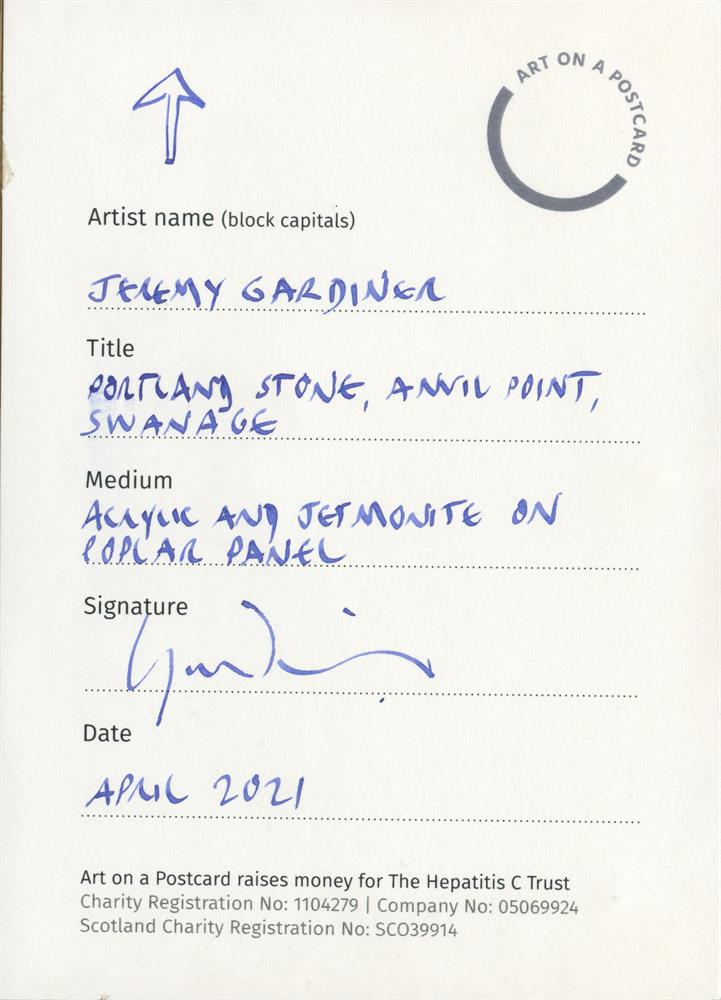 ART ON A POSTCARD
Artist name (block capitals)
JEREMY GARDINER
Title
PORTLAND STONE, ANVIL POINT,
SWANAGE
Medium
ACRYLIC AND JESMONITE ON
POPLAR PANEL
Signature
Date
APRIL 2021
Art on a Postcard raises money for The Hepatitis C Trust
Charity Registration No: 1104279 | Company No: 05069924
Scotland Charity Registration No: SCO39914